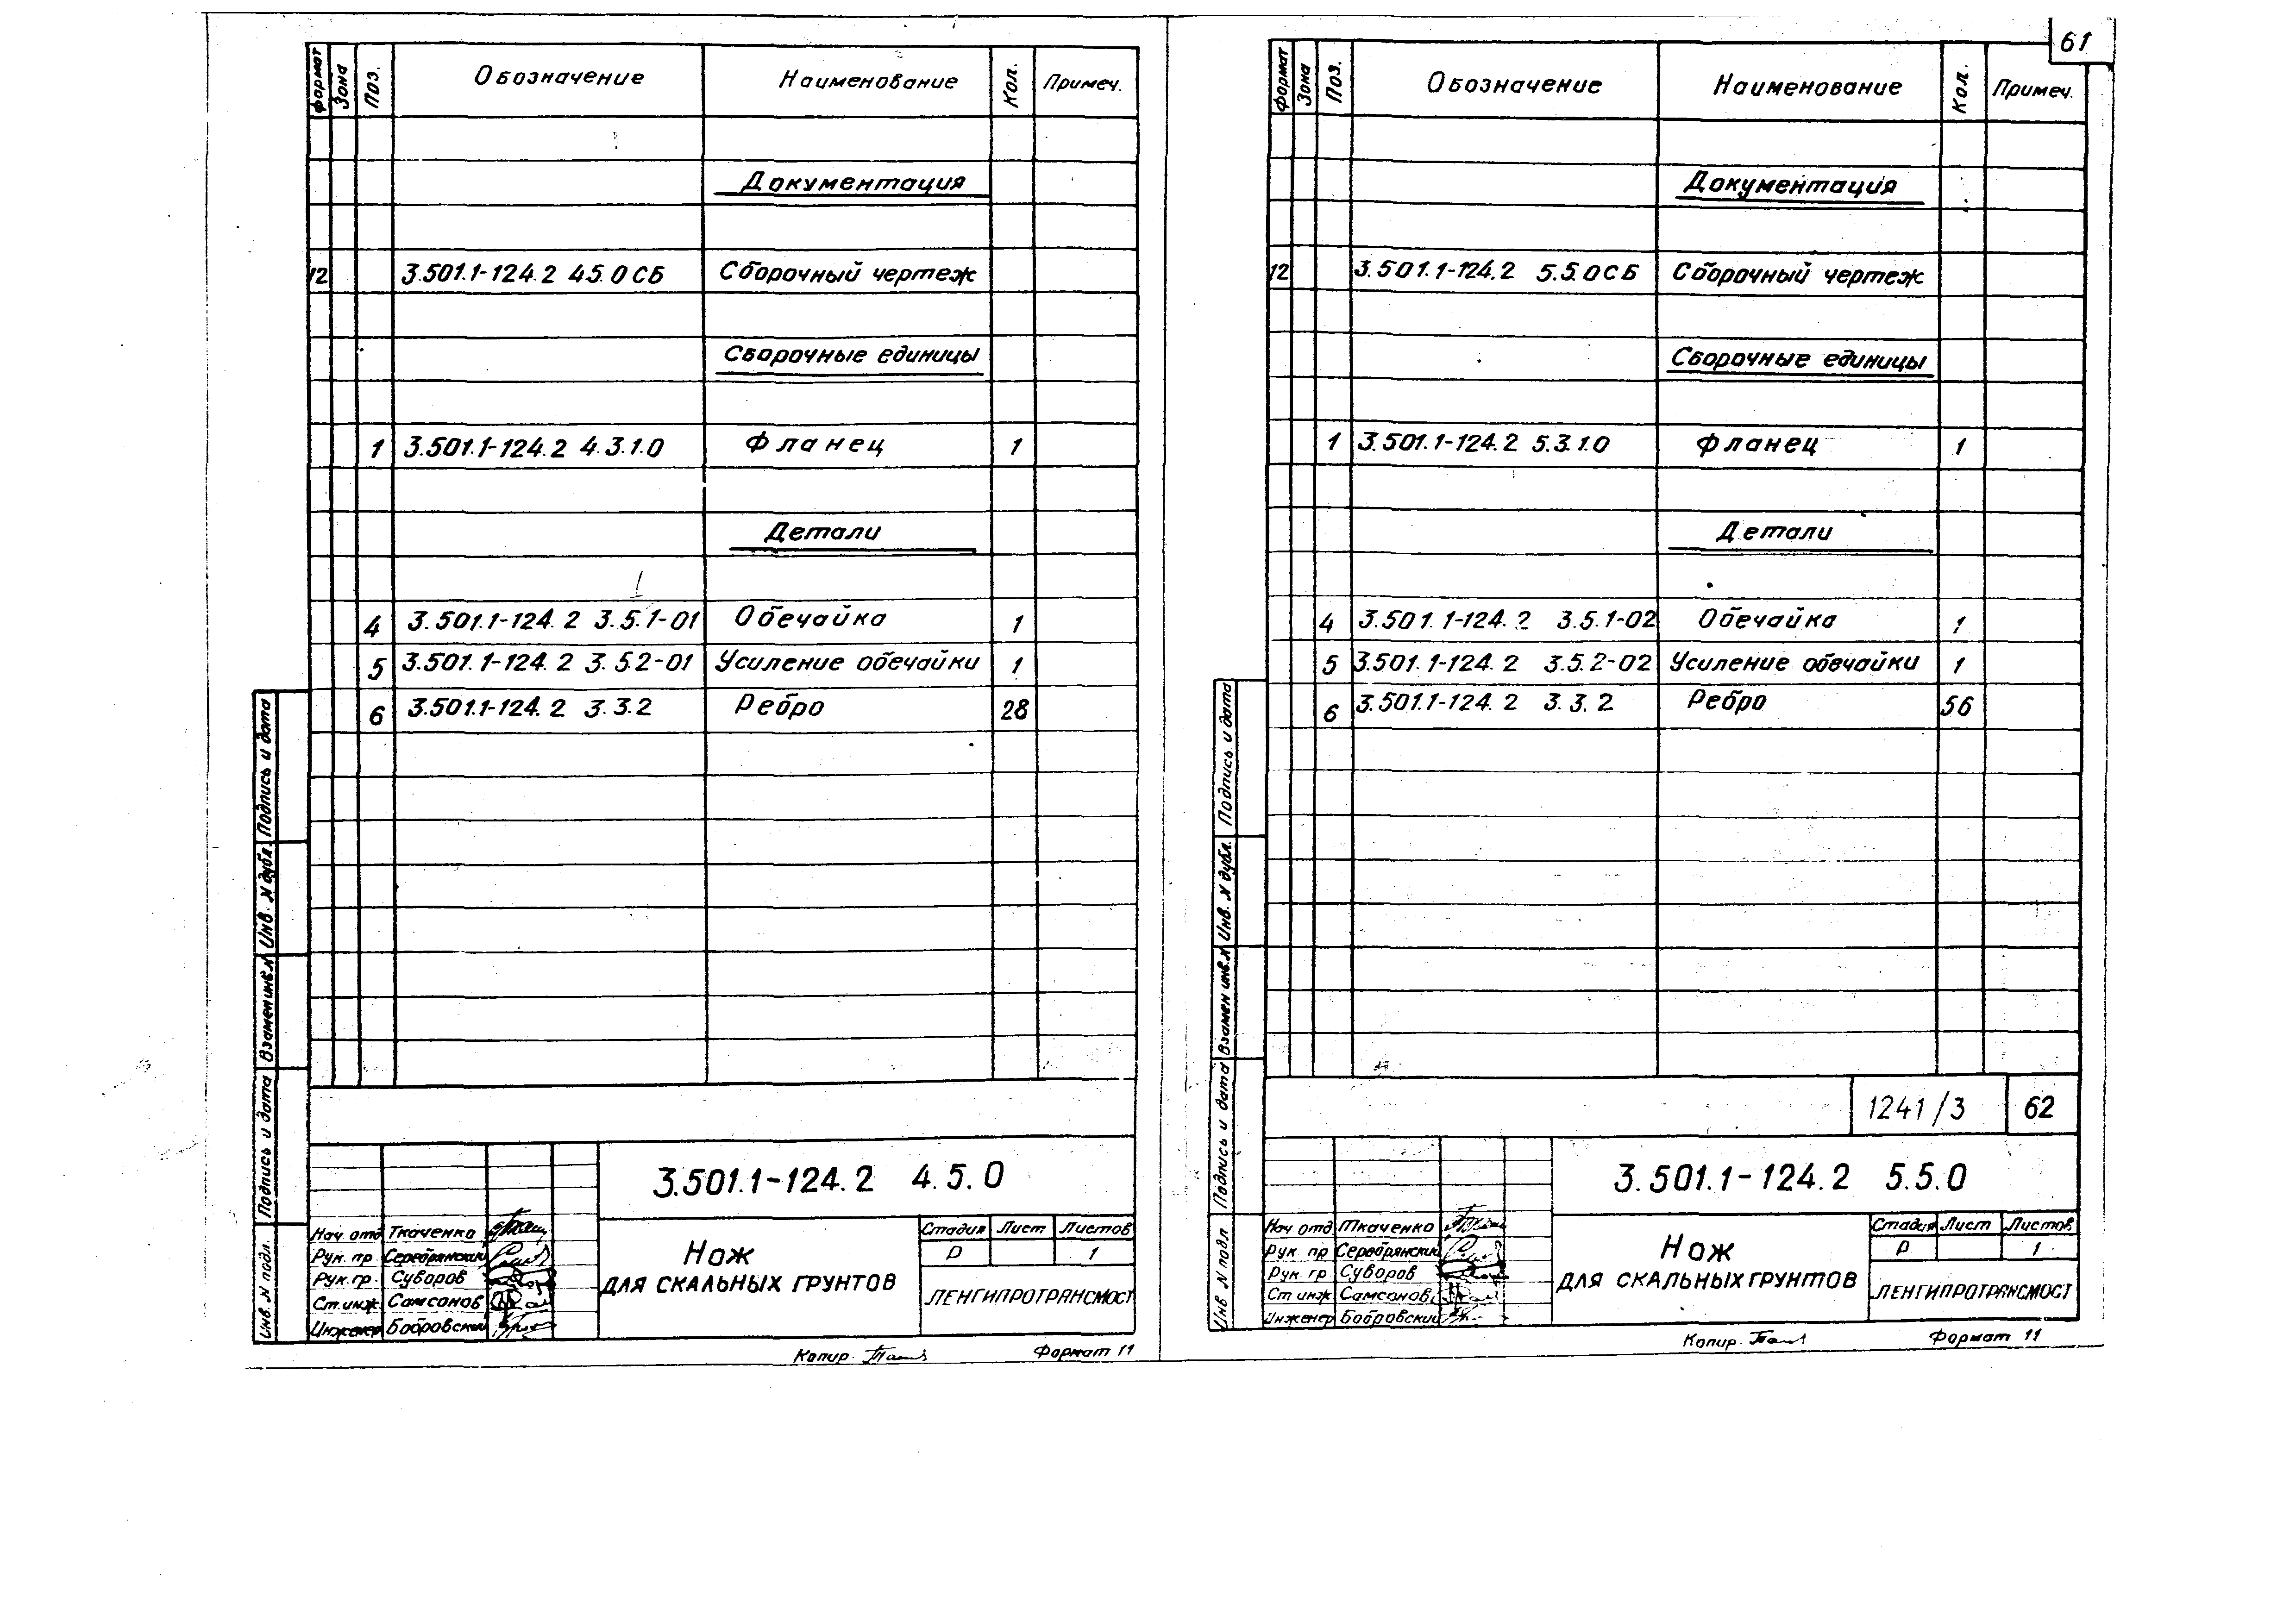 61
Формат Зона Поз. Обозначение Наименование Кол. Примеч.
Документация
12 3.501.1-124.2 4.5.0СБ Сборочный чертеж
Сборочные единицы
1 3.501.1-124.2 4.3.1.0 Фланец 1
Детали
4 3.501.1-124.2 3.5.1-01 Обечайка 1
5 3.501.1-124.2 3.5.2-01 Усиление обечайки 1
6 3.501.1-124.2 3.3.2 Ребро 28
Подпись и дата
Инв. N дубл.
Взамен инв. N
Подпись и дата
Инв. N подл.
3.501.1-124.2 4.5.0
Нач отд Ткаченко
Рук. пр. Серебрянский
Рук. гр. Суворов
Ст. инж. Самсонов
Инженер Бобровский
Нож
ДЛЯ СКАЛЬНЫХ ГРУНТОВ
Стадия Лист Листов
Р 1
ЛЕНГИПРОТРАНСМОСТ
Копир. Формат 11
Формат Зона Поз. Обозначение Наименование Кол. Примеч.
Документация
12 3.501.1-124.2 5.5.0СБ Сборочный чертеж
Сборочные единицы
1 3.501.1-124.2 5.3.1.0 Фланец 1
Детали
4 3.501.1-124.2 3.5.1-02 Обечайка 1
5 3.501.1-124.2 3.5.2-02 Усиление обечайки 1
6 3.501.1-124.2 3.3.2 Ребро 56
Подпись и дата
Инв. N дубл.
Взамен инв. N
Подпись и дата
Инв N подл.
1241/3 62
3.501.1-124.2 5.5.0
Нач отд Ткаченко
Рук пр Серебрянский
Рук гр Суворов
Ст инж Самсонов
Инженер Бобровский
Нож
ДЛЯ СКАЛЬНЫХ ГРУНТОВ
Стадия Лист Листов
Р 1
ЛЕНГИПРОТРАНСМОСТ
Копир. Формат 11